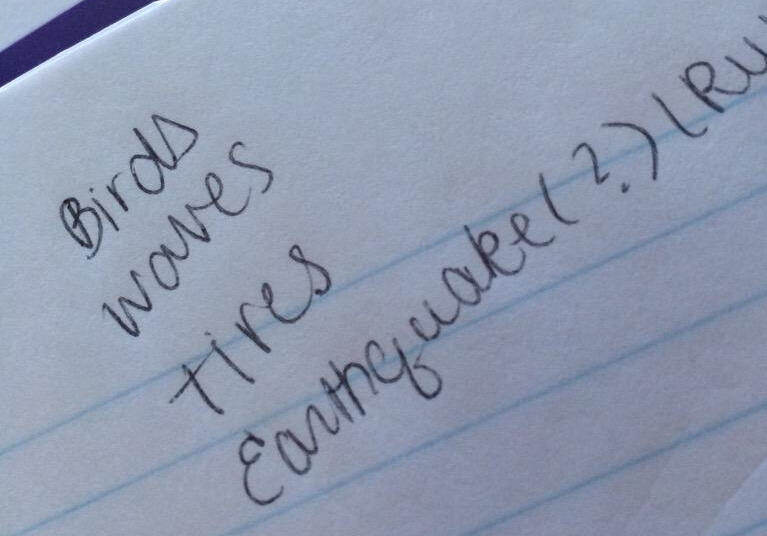 Birds
waves
tires
Earthquake(?)